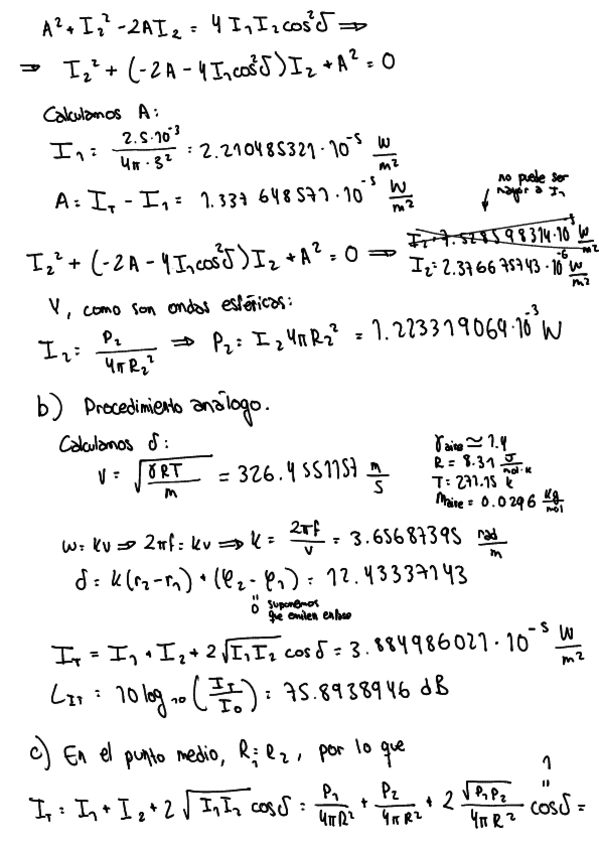 A² + I₂² - 2AI₂ = 4 I₁ I₂ cos²δ ⇒
⇒ I₂² + (-2A - 4I₁cos²δ) I₂ + A² = 0
Calculamos A:
I₁ = 2.5·10⁻³ / 4π·3² = 2.210485321·10⁻⁵ W/m²
A = I_T - I₁ = 1.337648571·10⁻⁵ W/m²
no puede ser mayor a I₁
I₂² + (-2A - 4I₁cos²δ) I₂ + A² = 0 ⇒ I₂ = 7.528598314·10⁻⁵ W/m²
I₂ = 2.376675743·10⁻⁶ W/m²
Y, como son ondas esféricas:
I₂ = P₂ / 4πR₂² ⇒ P₂ = I₂ 4πR₂² = 1.223319064·10⁻³ W
b) Procedimiento análogo.
Calculamos δ:
v = √(γRT / m) = 326.4551157 m/s
γaire ≃ 1.4
R = 8.31 J/mol·K
T = 271.15 K
Maire = 0.0296 kg/mol
ω = kv ⇒ 2πf = kv ⇒ k = 2πf / v = 3.65687395 rad/m
δ = k(r₂ - r₁) + (φ₂ - φ₁) = 12.43337143
0 suponemos que emiten en fase
I_T = I₁ + I₂ + 2√(I₁I₂) cosδ = 3.884986021·10⁻⁵ W/m²
L_IT = 10 log₁₀ (I_T / I₀) = 75.8938946 dB
c) En el punto medio, R₁ = R₂, por lo que
I_T = I₁ + I₂ + 2√(I₁I₂) cosδ = P₁/4πR² + P₂/4πR² + 2 √(P₁P₂)/4πR² cosδ =
1